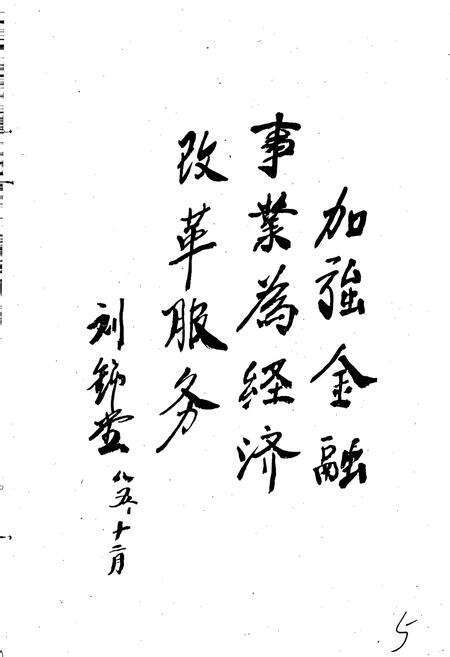 加强金融
事業為経济
改革服务
刘锦堂
八五、十二月
5